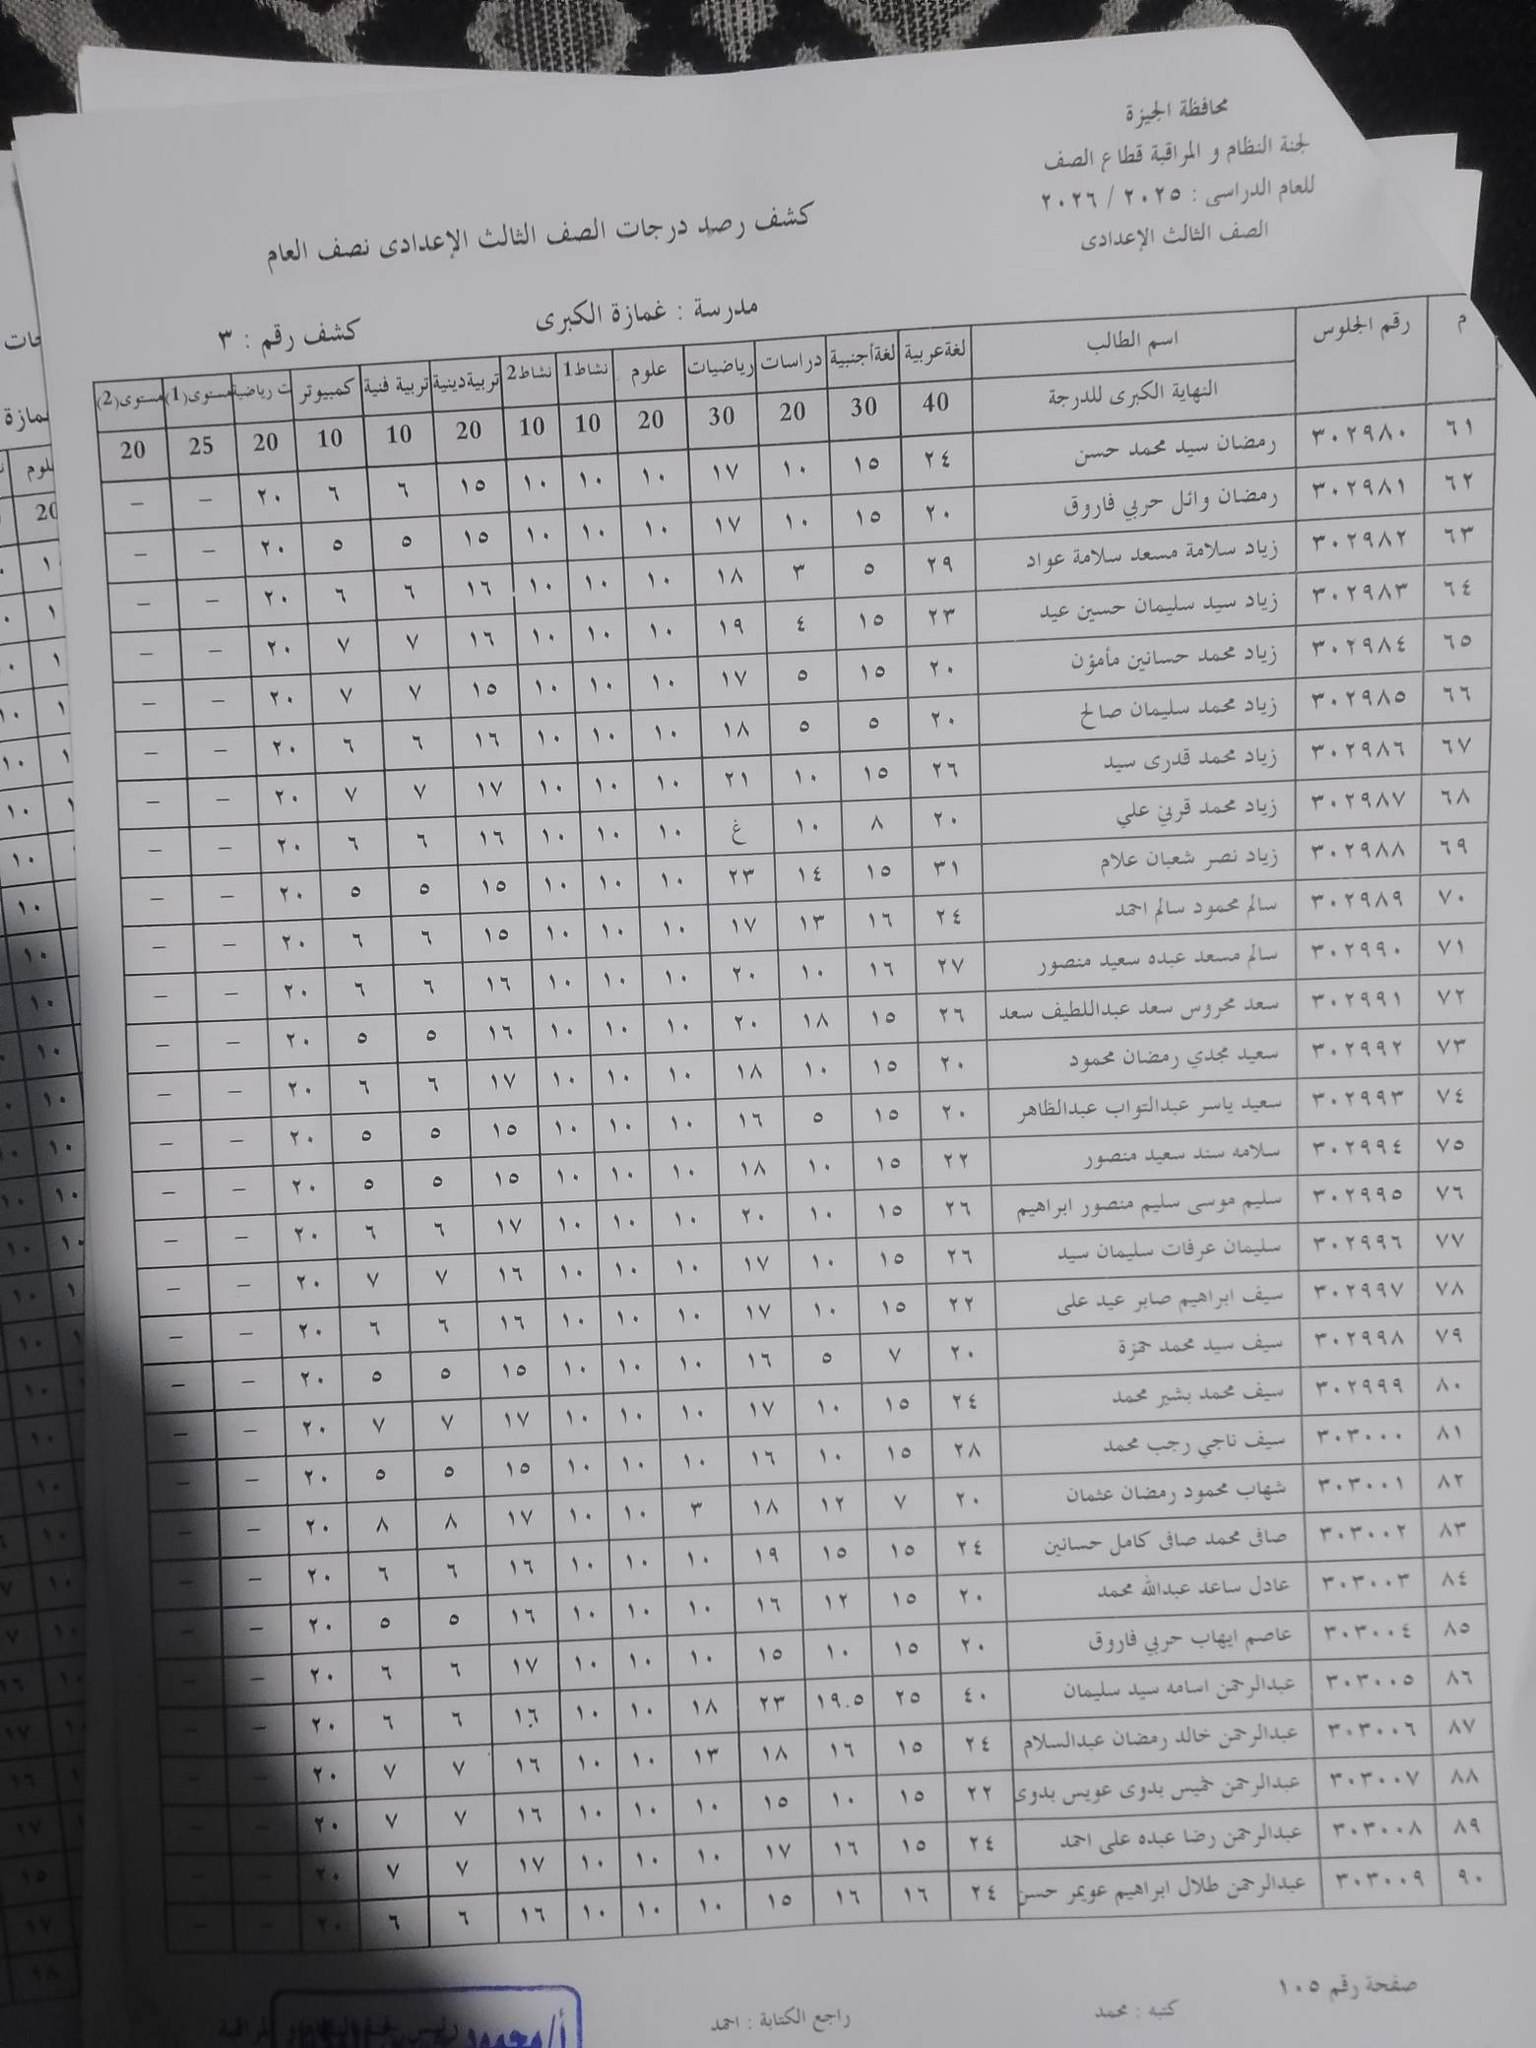 محافظة الجيزة
لجنة النظام و المراقبة قطاع الصف
للعام الدراسى : ٢٠٢٥ / ٢٠٢٦
الصف الثالث الإعدادى
كشف رصد درجات الصف الثالث الإعدادى نصف العام
مدرسة : غمازة الكبرى
كشف رقم : ٣
م رقم الجلوس اسم الطالب لغة عربية لغة أجنبية دراسات رياضيات علوم نشاط1 نشاط2 تربية دينية تربية فنية كمبيوتر ت رياضية مستوى(1) مستوى(2)
النهاية الكبرى للدرجة 40 30 20 30 20 10 10 20 10 10 20 25 20
٦١ ٣٠٢٩٨٠ رمضان سيد محمد حسن ٢٤ ١٥ ١٠ ١٧ ١٠ ١٠ ١٠ ١٥ ٦ ٦ ٢٠ – –
٦٢ ٣٠٢٩٨١ رمضان وائل حربي فاروق ٢٠ ١٥ ١٠ ١٧ ١٠ ١٠ ١٠ ١٥ ٥ ٥ ٢٠ – –
٦٣ ٣٠٢٩٨٢ زياد سلامة مسعد سلامة عواد ٢٩ ٥ ٣ ١٨ ١٠ ١٠ ١٠ ١٦ ٦ ٦ ٢٠ – –
٦٤ ٣٠٢٩٨٣ زياد سيد سليمان حسين عيد ٢٣ ١٥ ٤ ١٩ ١٠ ١٠ ١٠ ١٦ ٧ ٧ ٢٠ – –
٦٥ ٣٠٢٩٨٤ زياد محمد حسانين مأمؤن ٢٠ ١٥ ٥ ١٧ ١٠ ١٠ ١٠ ١٥ ٧ ٧ ٢٠ – –
٦٦ ٣٠٢٩٨٥ زياد محمد سليمان صالح ٢٠ ٥ ٥ ١٨ ١٠ ١٠ ١٠ ١٦ ٦ ٦ ٢٠ – –
٦٧ ٣٠٢٩٨٦ زياد محمد قدرى سيد ٢٦ ١٥ ١٠ ٢١ ١٠ ١٠ ١٠ ١٧ ٧ ٧ ٢٠ – –
٦٨ ٣٠٢٩٨٧ زياد محمد قرني علي ٢٠ ٨ ١٠ غ ١٠ ١٠ ١٠ ١٦ ٦ ٦ ٢٠ – –
٦٩ ٣٠٢٩٨٨ زياد نصر شعبان علام ٣١ ١٥ ١٤ ٢٣ ١٠ ١٠ ١٠ ١٥ ٥ ٥ ٢٠ – –
٧٠ ٣٠٢٩٨٩ سالم محمود سالم احمد ٢٤ ١٦ ١٣ ١٧ ١٠ ١٠ ١٠ ١٥ ٦ ٦ ٢٠ – –
٧١ ٣٠٢٩٩٠ سالم مسعد عبده سعيد منصور ٢٧ ١٦ ١٠ ٢٠ ١٠ ١٠ ١٠ ١٦ ٦ ٦ ٢٠ – –
٧٢ ٣٠٢٩٩١ سعد محروس سعد عبداللطيف سعد ٢٦ ١٥ ١٨ ٢٠ ١٠ ١٠ ١٠ ١٦ ٥ ٥ ٢٠ – –
٧٣ ٣٠٢٩٩٢ سعيد مجدي رمضان محمود ٢٠ ١٥ ١٠ ١٨ ١٠ ١٠ ١٠ ١٧ ٦ ٦ ٢٠ – –
٧٤ ٣٠٢٩٩٣ سعيد ياسر عبدالتواب عبدالظاهر ٢٠ ١٥ ٥ ١٦ ١٠ ١٠ ١٠ ١٥ ٥ ٥ ٢٠ – –
٧٥ ٣٠٢٩٩٤ سلامه سند سعيد منصور ٢٢ ١٥ ١٠ ١٨ ١٠ ١٠ ١٠ ١٥ ٥ ٥ ٢٠ – –
٧٦ ٣٠٢٩٩٥ سليم موسى سليم منصور ابراهيم ٢٦ ١٥ ١٠ ٢٠ ١٠ ١٠ ١٠ ١٧ ٦ ٦ ٢٠ – –
٧٧ ٣٠٢٩٩٦ سليمان عرفات سليمان سيد ٢٦ ١٥ ١٠ ١٧ ١٠ ١٠ ١٠ ١٦ ٧ ٧ ٢٠ – –
٧٨ ٣٠٢٩٩٧ سيف ابراهيم صابر عيد على ٢٢ ١٥ ١٠ ١٧ ١٠ ١٠ ١٠ ١٦ ٦ ٦ ٢٠ – –
٧٩ ٣٠٢٩٩٨ سيف سيد محمد حمزة ٢٠ ٧ ٥ ١٦ ١٠ ١٠ ١٠ ١٥ ٥ ٥ ٢٠ – –
٨٠ ٣٠٢٩٩٩ سيف محمد بشير محمد ٢٤ ١٥ ١٠ ١٧ ١٠ ١٠ ١٠ ١٧ ٧ ٧ ٢٠ – –
٨١ ٣٠٣٠٠٠ سيف ناجي رجب محمد ٢٨ ١٥ ١٠ ١٦ ١٠ ١٠ ١٠ ١٥ ٥ ٥ ٢٠ – –
٨٢ ٣٠٣٠٠١ شهاب محمود رمضان عثمان ٢٠ ٧ ١٢ ١٨ ٣ ١٠ ١٠ ١٧ ٨ ٨ ٢٠ – –
٨٣ ٣٠٣٠٠٢ صافى محمد صافى كامل حسانين ٢٤ ١٥ ١٥ ١٩ ١٠ ١٠ ١٠ ١٦ ٦ ٦ ٢٠ – –
٨٤ ٣٠٣٠٠٣ عادل ساعد عبدالله محمد ٢٠ ١٥ ١٢ ١٦ ١٠ ١٠ ١٠ ١٦ ٥ ٥ ٢٠ – –
٨٥ ٣٠٣٠٠٤ عاصم ايهاب حربي فاروق ٢٠ ١٥ ١٠ ١٥ ١٠ ١٠ ١٠ ١٧ ٦ ٦ ٢٠ – –
٨٦ ٣٠٣٠٠٥ عبدالرحمن اسامه سيد سليمان ٤٠ ٢٥ ١٩.٥ ٢٣ ١٨ ١٠ ١٠ ١٦ ٦ ٦ ٢٠ – –
٨٧ ٣٠٣٠٠٦ عبدالرحمن خالد رمضان عبدالسلام ٢٤ ١٥ ١٦ ١٨ ١٣ ١٠ ١٠ ١٦ ٧ ٧ ٢٠ – –
٨٨ ٣٠٣٠٠٧ عبدالرحمن خميس بدوى عويس بدوى ٢٢ ١٥ ١٠ ١٥ ١٠ ١٠ ١٠ ١٦ ٧ ٧ ٢٠ – –
٨٩ ٣٠٣٠٠٨ عبدالرحمن رضا عبده على احمد ٢٤ ١٥ ١٦ ١٧ ١٠ ١٠ ١٠ ١٧ ٧ ٧ ٢٠ – –
٩٠ ٣٠٣٠٠٩ عبدالرحمن طلال ابراهيم عويمر حسن ٢٤ ١٦ ١٦ ١٥ ١٠ ١٠ ١٠ ١٦ ٦ ٦ ٢٠ – –
صفحة رقم ١٠٥
كتبه : محمد
راجع الكتابة : احمد
أ/محمود